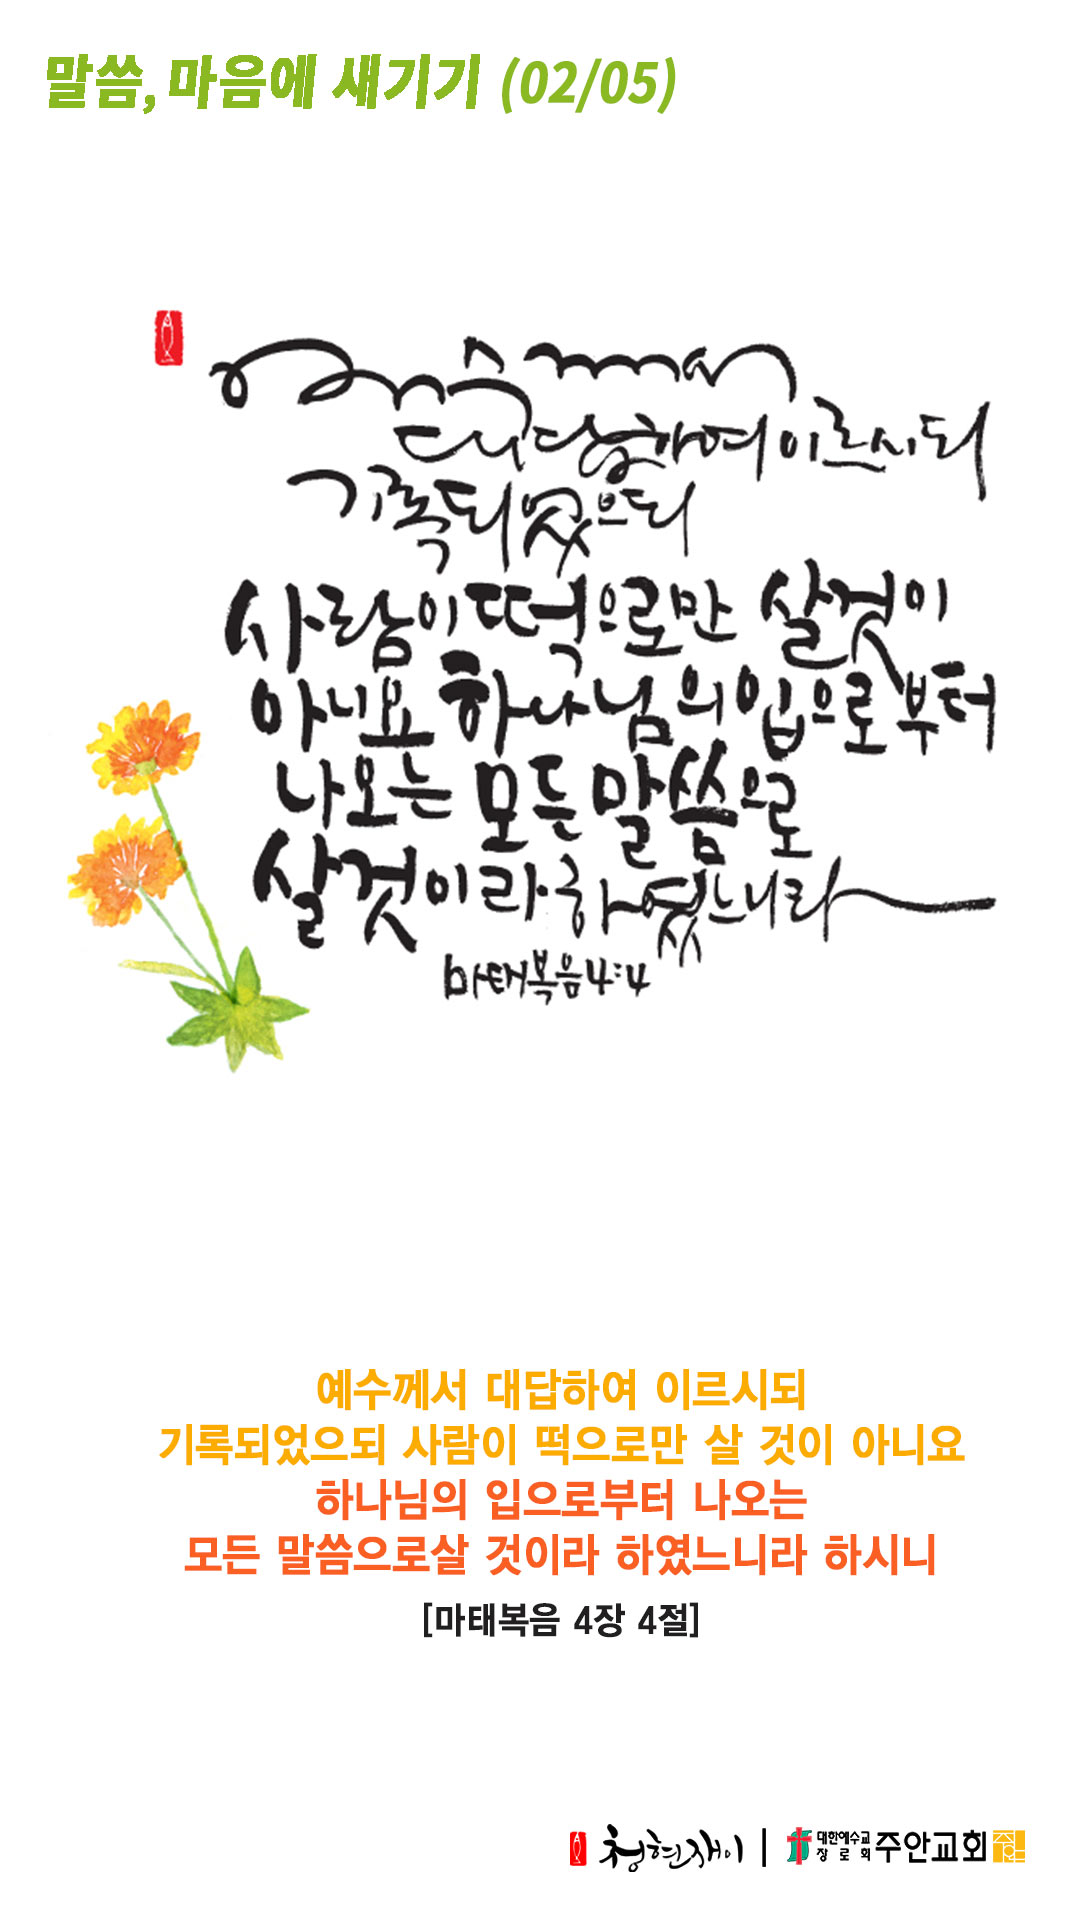 말씀, 마음에 새기기 (02/05)
예수께서
대답하여 이르시되
기록되었으되
사람이 떡으로만 살것이
아니요 하나님의 입으로부터
나오는 모든 말씀으로
살것이라 하였느니라
마태복음 4:4
예수께서 대답하여 이르시되
기록되었으되 사람이 떡으로만 살 것이 아니요
하나님의 입으로부터 나오는
모든 말씀으로살 것이라 하였느니라 하시니
[마태복음 4장 4절]
청현재이 | 대한예수교 장로회 주안교회